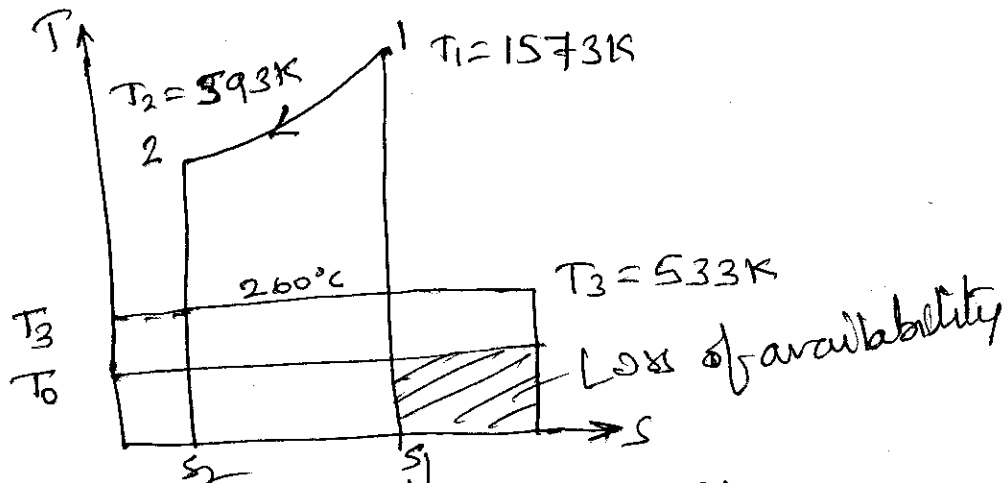 T
1 T₁ = 1573K
T₂ = 593K
2
260°C
T₃ = 533K
T₃
T₀
Loss of availability
S
S₂
S₁